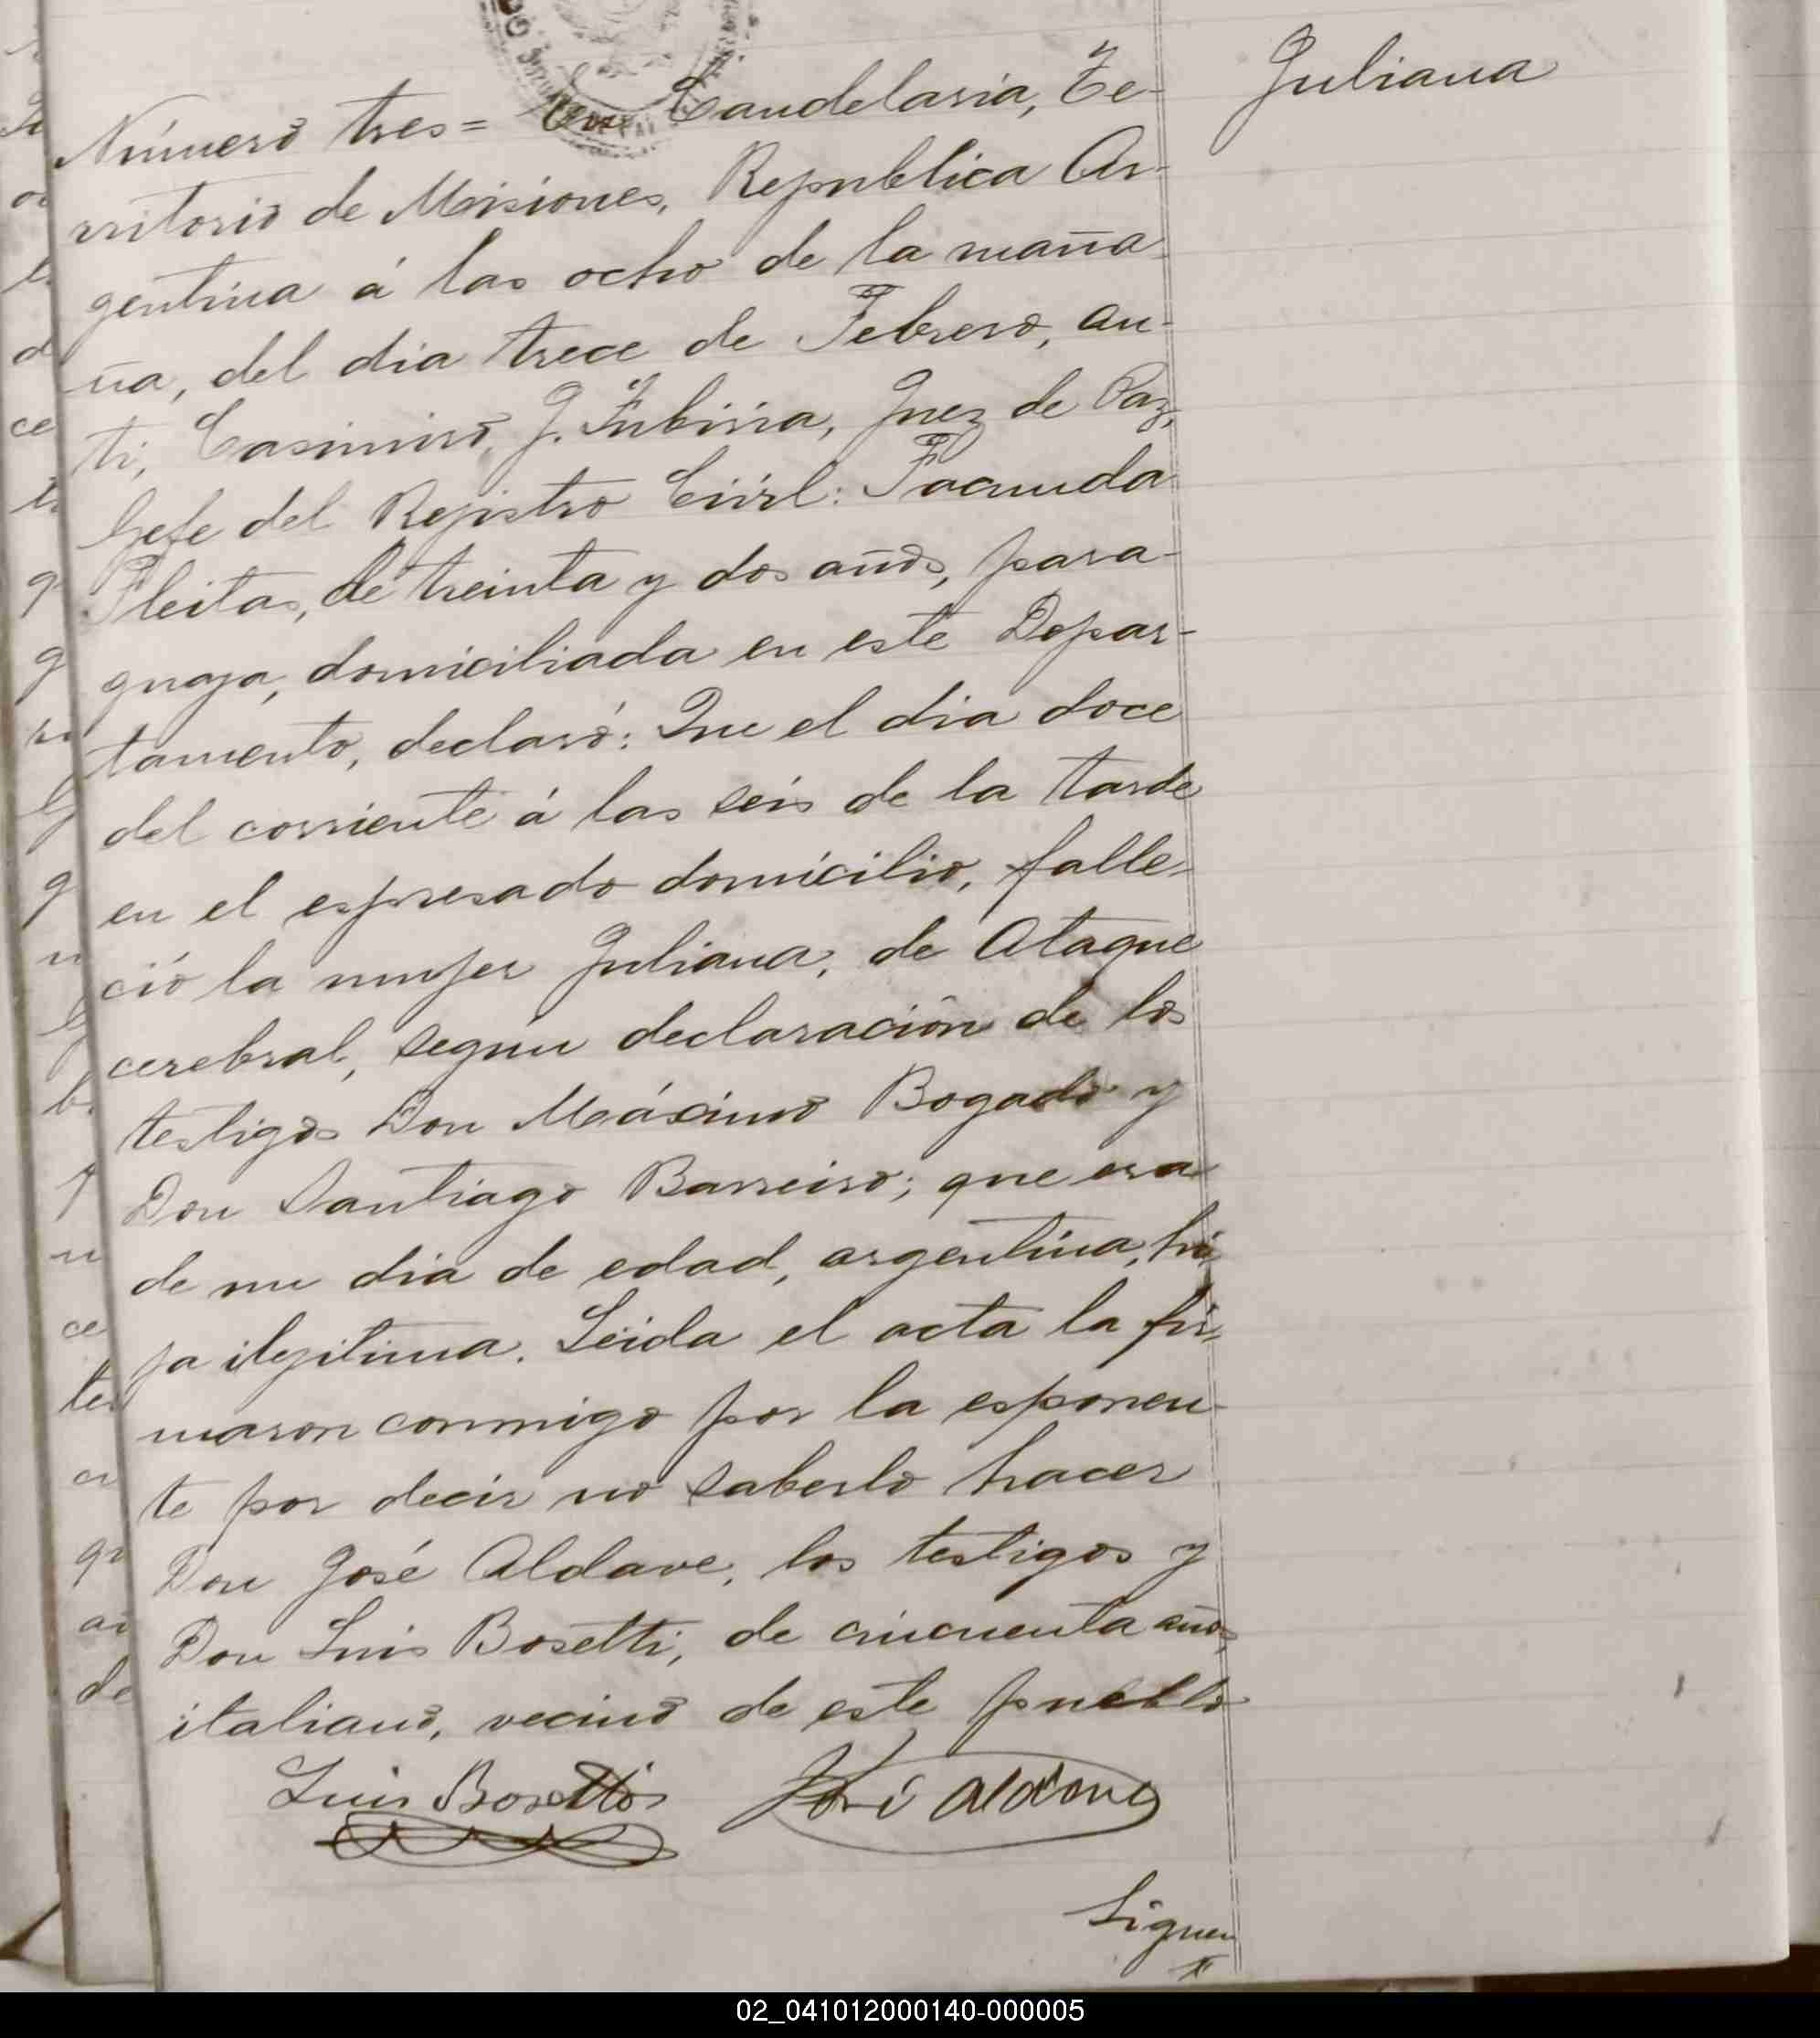 Juliana
Número tres = En Candelaria, Te-
rritorio de Misiones, Republica Ar-
gentina á las ocho de la maña-
na, del dia trece de Febrero, an-
ti, Casimiro, J. Jubiria, Juez de Paz,
Gefe del Rejistro Civil: Facunda
Fleitas, de treinta y dos años, para-
guaja, domiciliada en este Depar-
tamento, declaró: Que el dia doce
del corriente á las seis de la tarde
en el espresado domicilio, falle-
ció la mujer Juliana, de Ataque
cerebral, segun declaración de los
testigos Don Máximo Bogado y
Don Santiago Barreiro; que era
de un dia de edad, argentina, hi-
ja ilejitima. Leida el acta la fir-
maron conmigo por la esponen-
te por decir no saberlo hacer
Don José Aldave, los testigos y
Don Luis Bosetti, de cincuenta años,
italiano, vecino de este pueblo
Luis Bosetti José Aldave
Siguen
02_041012000140-000005